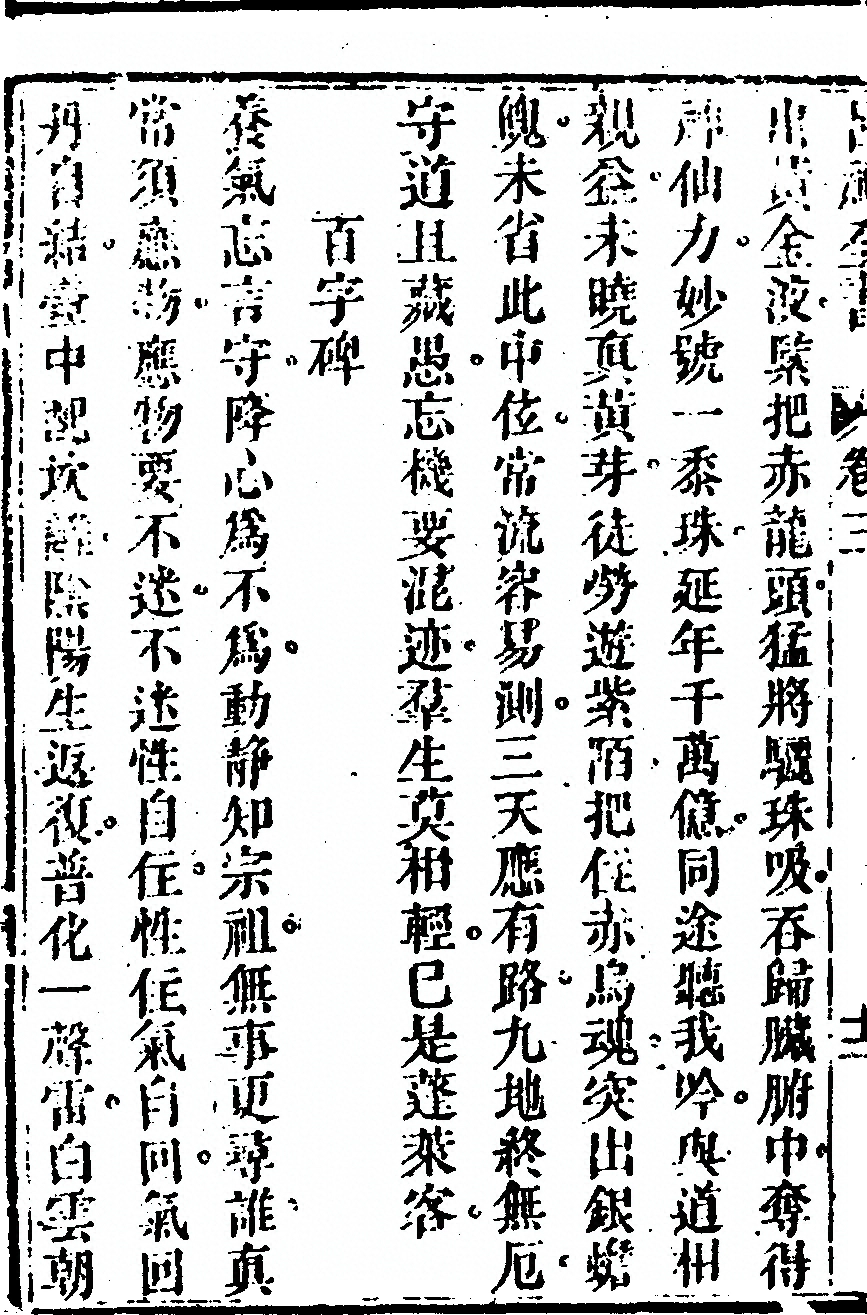 呂祖全書 卷三 十
出黃金液緊把赤龍頭猛將驪珠吸吞歸臟腑中奪得
神仙力妙號一黍珠延年千萬億同途聽我吟與道相
親益未曉真黃芽徒勞遊紫陌把住赤烏魂突出銀蟾
魄未省此中位常流容易測三天應有路九地終無厄
守道且藏愚忘機要混迹羣生莫相輕已是蓬萊客
百字碑
養氣忘言守降心為不為動靜知宗祖無事更尋誰真
常須應物應物要不迷不迷性自住性住氣自回氣回
丹自結壺中配坎離陰陽生返復普化一聲雷白雲朝